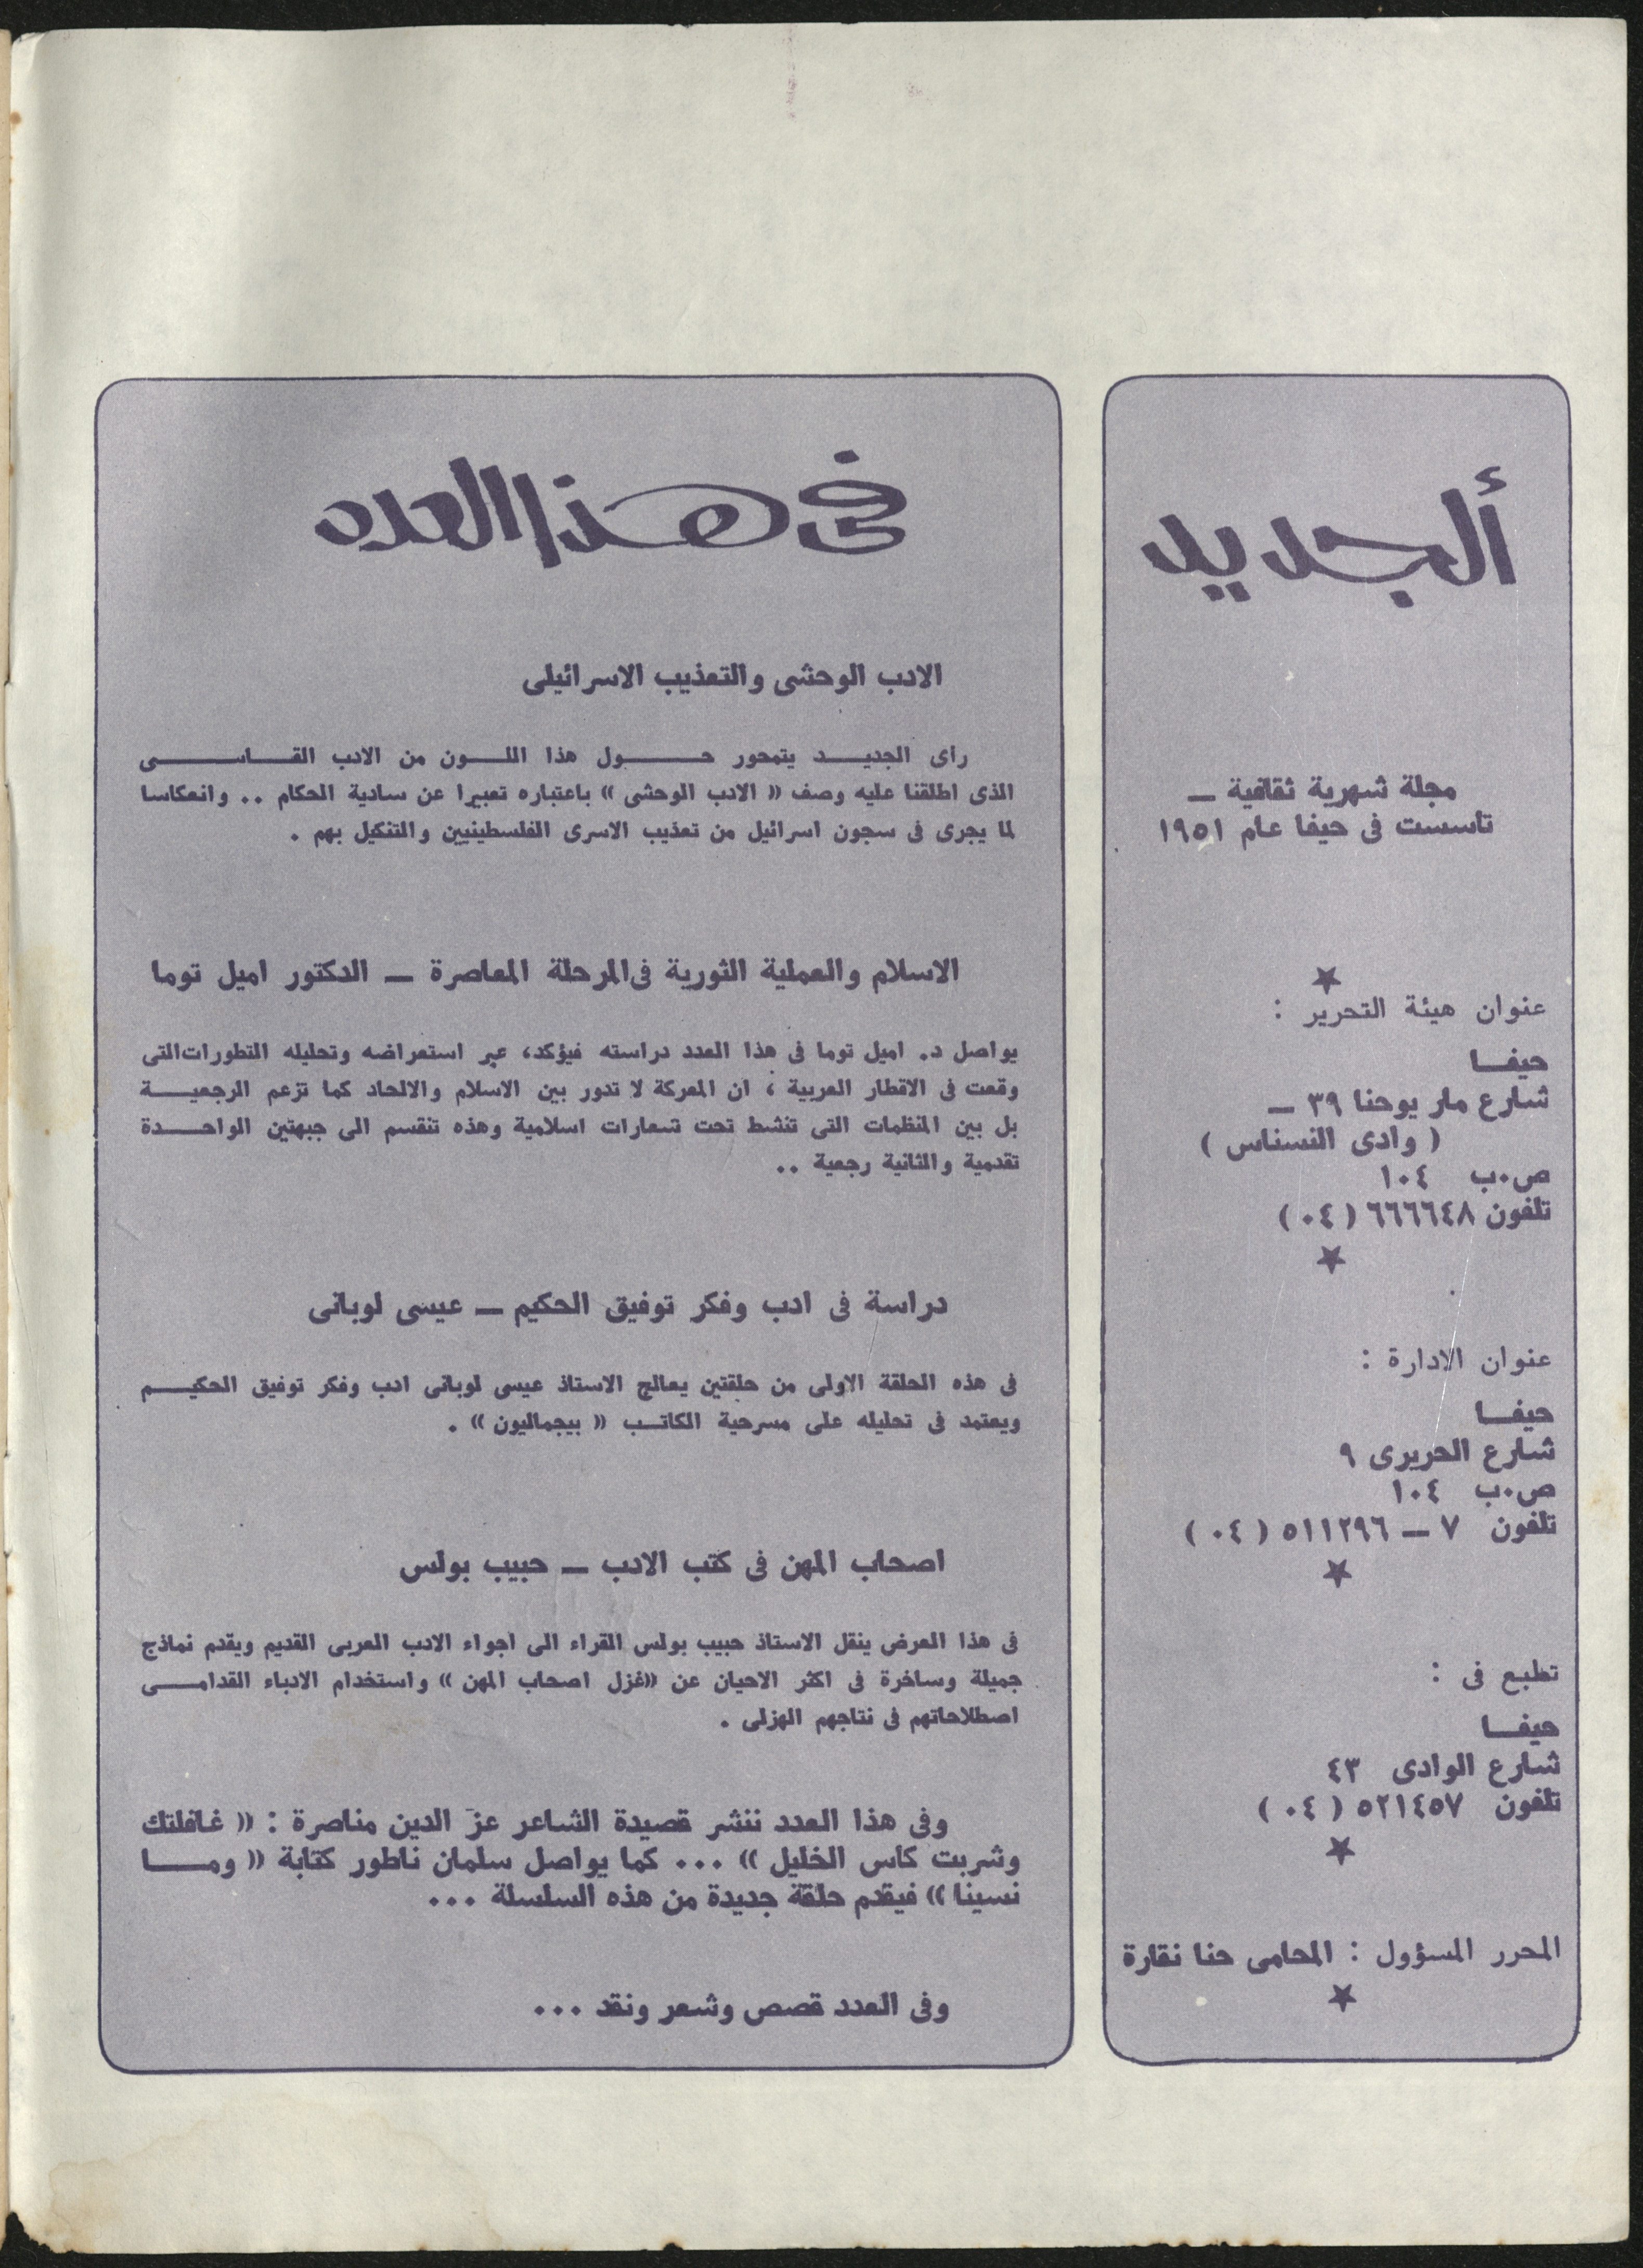 ألجديد
مجلة شهرية ثقافية ــ
تأسست فى حيفا عام ١٩٥١
★
عنوان هيئة التحرير :
حيفــا
شارع مار يوحنا ٣٩ ــ
( وادى النسناس )
ص.ب ١٠٤
تلفون ٦٦٦٦٤٨ ( ٠٤ )
★
عنوان الادارة :
حيفــا
شارع الحريرى ٩
ص.ب ١٠٤
تلفون ٧ ــ ٥١١٢٩٦ ( ٠٤ )
★
تطبع فى :
حيفــا
شارع الوادى ٤٣
تلفون ٥٢١٤٥٧ ( ٠٤ )
★
المحرر المسؤول : المحامى حنا نقارة
★
فى هذا العدد
الادب الوحشى والتعذيب الاسرائيلى
رأى الجديــد يتمحور حــــول هذا اللــون من الادب القـــاســــى
الذى اطلقنا عليه وصف (( الادب الوحشى )) باعتباره تعبيرا عن سادية الحكام .. وانعكاسا
لما يجرى فى سجون اسرائيل من تعذيب الاسرى الفلسطينيين والتنكيل بهم .
الاسلام والعملية الثورية فى المرحلة المعاصرة ــ الدكتور اميل توما
يواصل د. اميل توما فى هذا العدد دراسته فيؤكد، عبر استعراضه وتحليله التطورات التى
وقعت فى الاقطار العربية ، ان المعركة لا تدور بين الاسلام والالحاد كما تزعم الرجعيــة
بل بين المنظمات التى تنشط تحت شعارات اسلامية وهذه تنقسم الى جبهتين الواحــدة
تقدمية والثانية رجعية ..
دراسة فى ادب وفكر توفيق الحكيم ــ عيسى لوبانى
فى هذه الحلقة الاولى من حلقتين يعالج الاستاذ عيسى لوبانى ادب وفكر توفيق الحكيــم
ويعتمد فى تحليله على مسرحية الكاتــب (( بيجماليون )) .
اصحاب المهن فى كتب الادب ــ حبيب بولس
فى هذا العرض ينقل الاستاذ حبيب بولس القراء الى اجواء الادب العربى القديم ويقدم نماذج
جميلة وساخرة فى اكثر الاحيان عن ((غزل اصحاب المهن )) واستخدام الادباء القدامـــى
اصطلاحاتهم فى نتاجهم الهزلى .
وفى هذا العدد ننشر قصيدة الشاعر عزّ الدين مناصرة : (( غافلتك
وشربت كأس الخليل )) ... كما يواصل سلمان ناطور كتابة (( ومـــا
نسينا )) فيقدم حلقة جديدة من هذه السلسلة ...
وفى العدد قصص وشعر ونقد ...